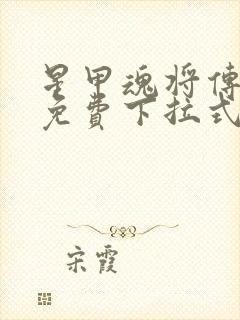 星甲魂将傳
免費下拉式
宋霞